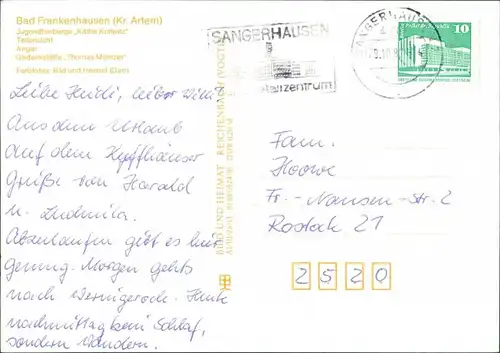 Bad Frankenhausen (Kr. Artern)
Jugendherberge „Käthe Kollwitz“
Teilansicht
Anger
Gedenkstätte „Thomas Müntzer“
Farbfotos: Bild und Heimat
SANGERHAUSEN
zentrum
SANGERHAUSEN
10
BILD UND HEIMAT REICHENBACH (VOGTL)
Liebe Heidi, lieber Willi
Aus dem Urlaub
auf dem Kyffhäuser
Grüße von Harald
u. Ludmila.
Abzulaufen gibt es hier
genug. Morgen gehts
nach Wernigerode. Heute
nachmittag kein Schlaf,
sondern Wandern.
Fam.
Hoowe
Fr.-Nansen-Str. 2
Rostock 21
2520